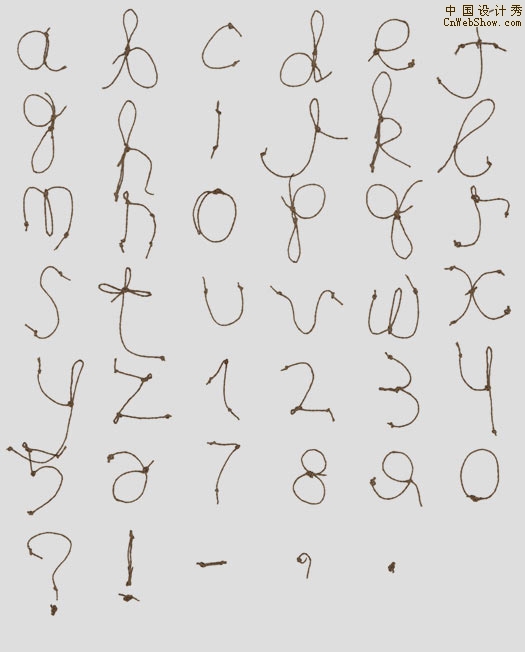 中国设计秀
CnWebShow.com
a b c d e f
g h i j k l
m n o p q r
s t u v w x
y z 1 2 3 4
5 6 7 8 9 0
? ! - , .